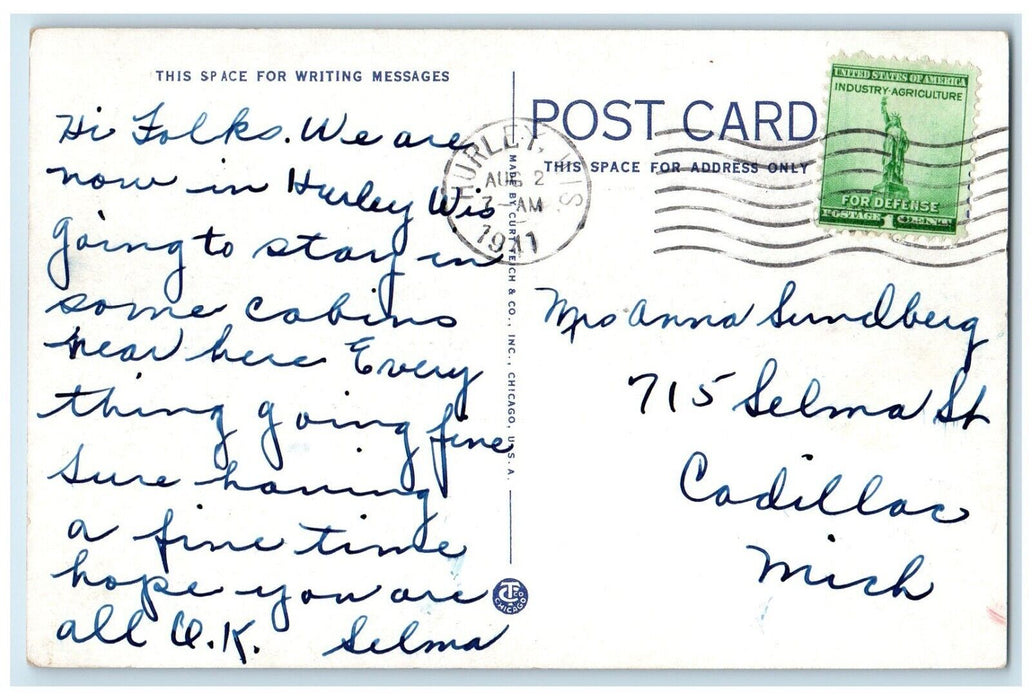 THIS SPACE FOR WRITING MESSAGES
Hi Folks. We are
now in Hurley Wis
going to stay in
some cabins
near here Every
thing going fine
sure having
a fine time
hope you are
all O.K. Selma
MADE BY CURT TEICH & CO., INC., CHICAGO, U.S.A.
CHICAGO
POST CARD
THIS SPACE FOR ADDRESS ONLY
HURLEY, WIS.
AUG 2
7-AM
1941
UNITED STATES OF AMERICA
INDUSTRY·AGRICULTURE
FOR DEFENSE
POSTAGE 1 CENT
Mrs Anna Sundberg
715 Selma St
Cadillac
Mich